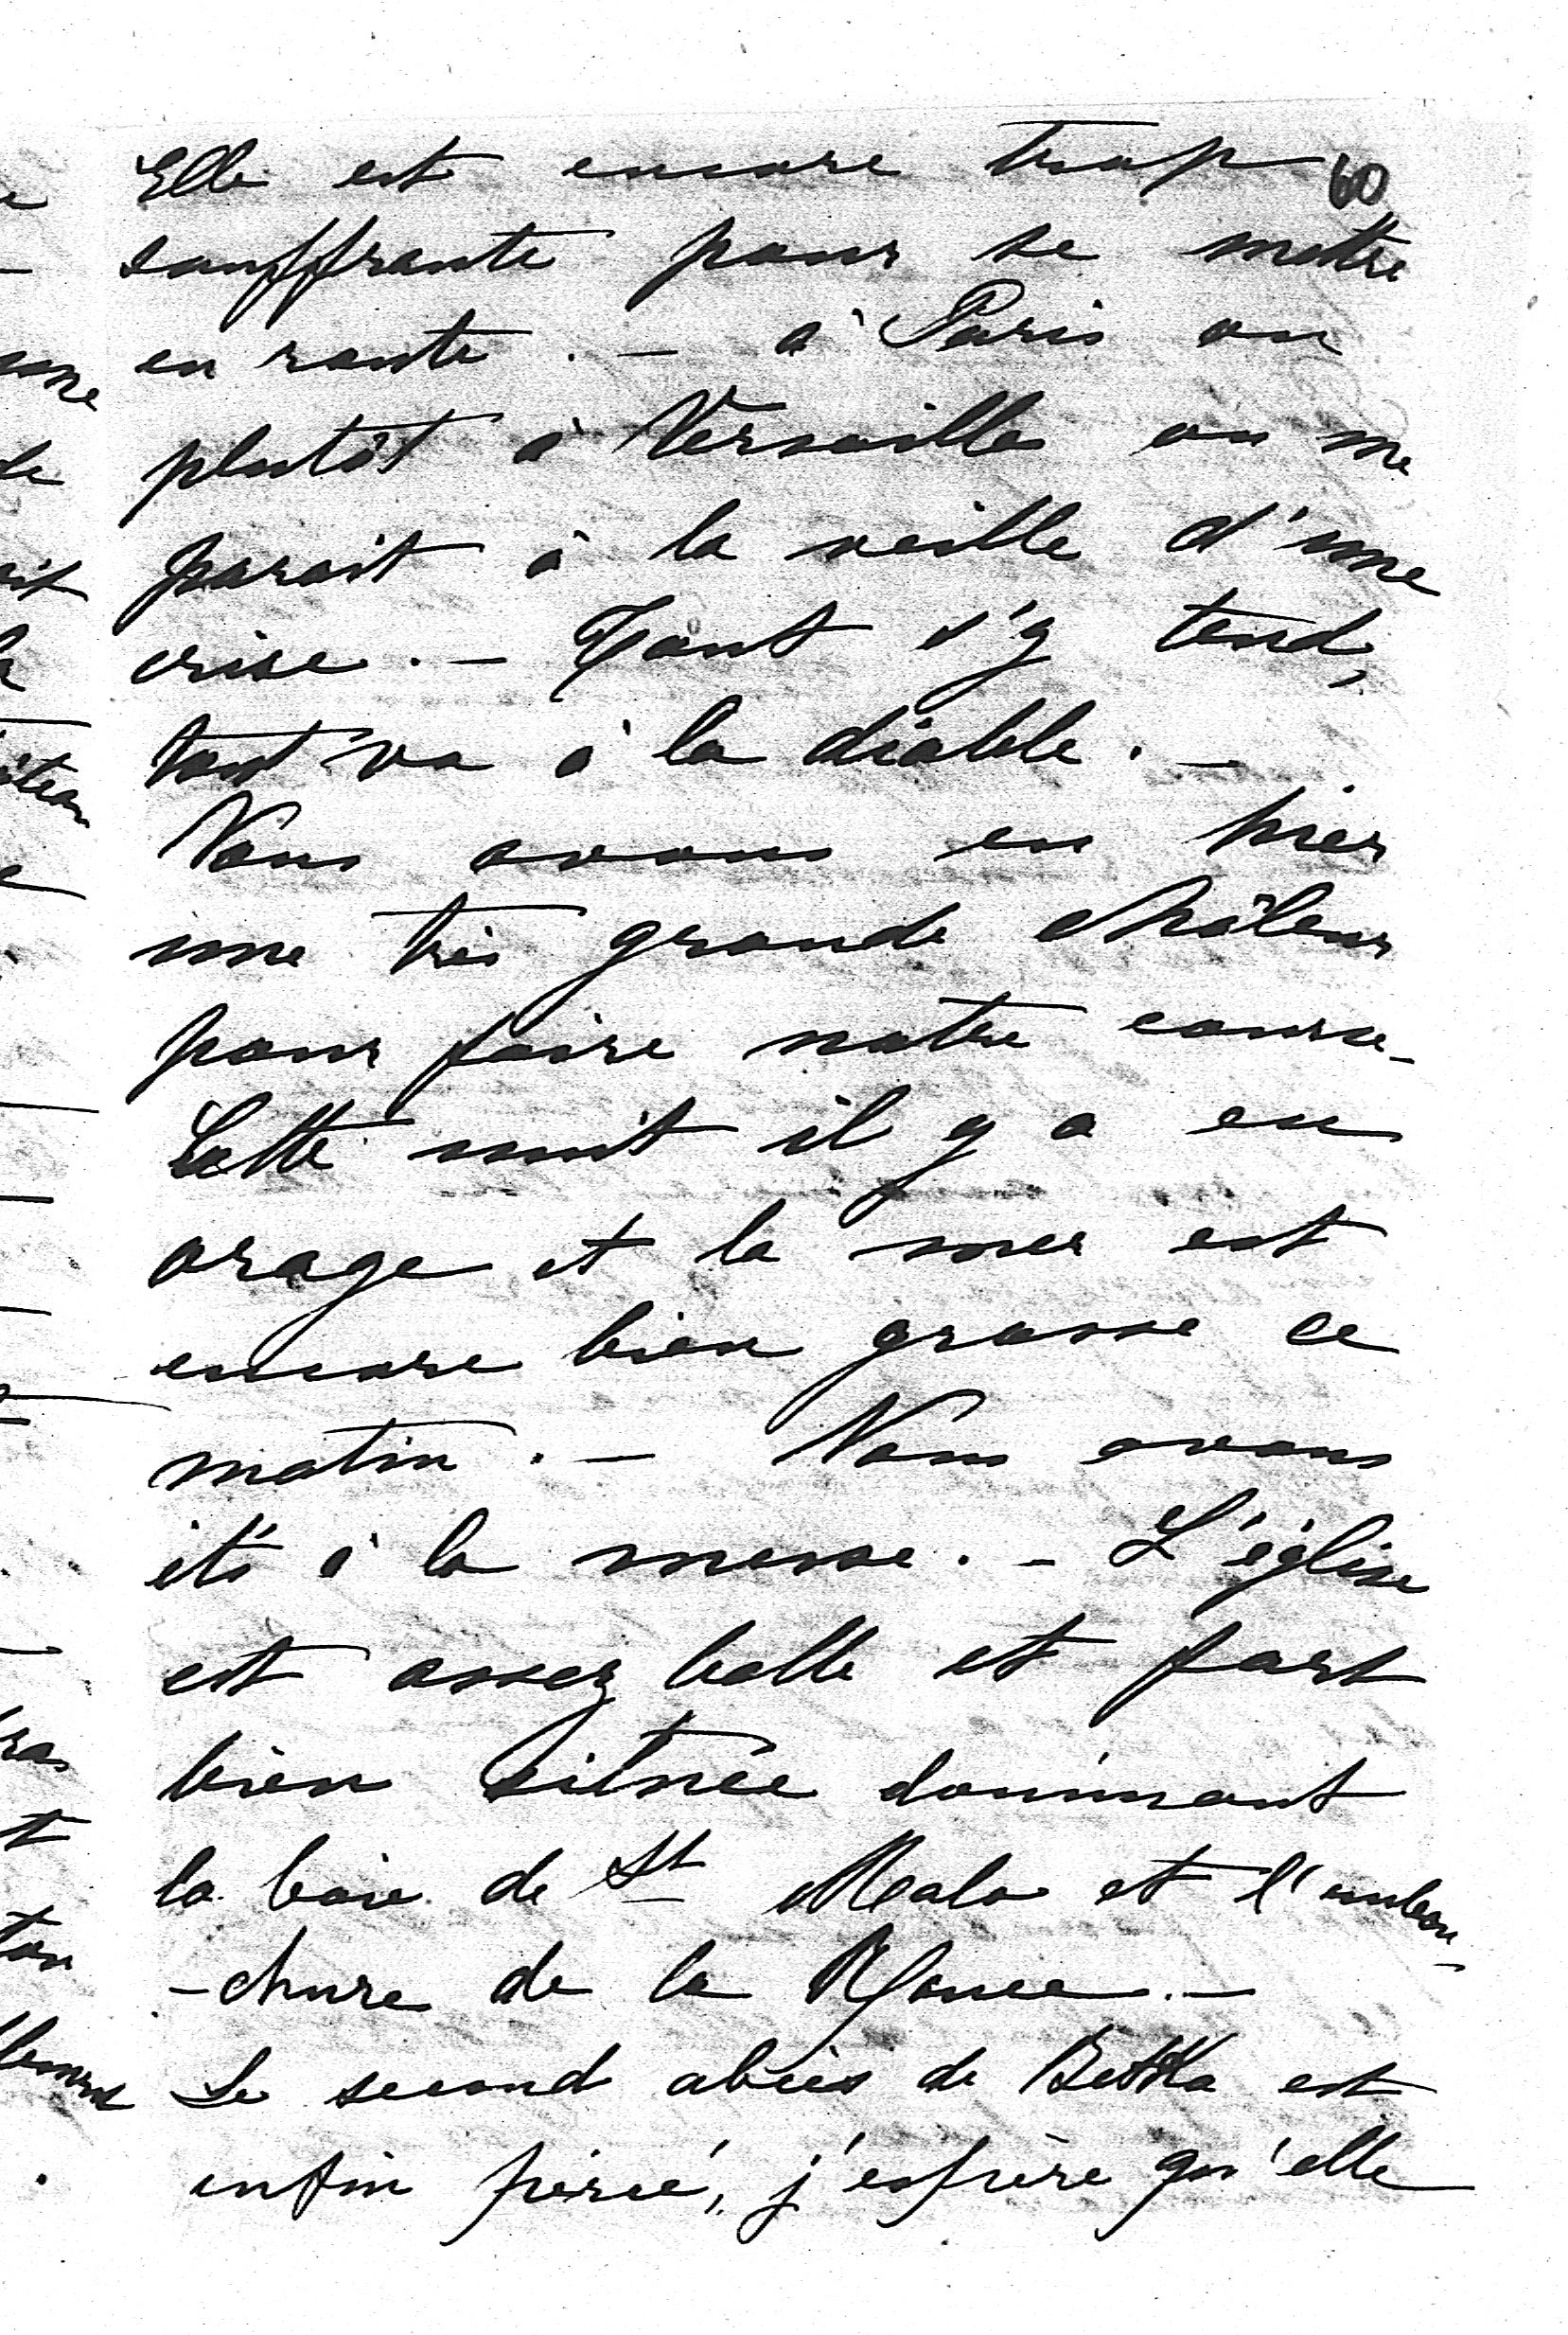 60
Elle est encore trop
souffrante pour se mettre
en route. – à Paris ou
plutôt à Versailles on me
parait à la veille d'une
crise. – Tout s'y tend,
tout va à la diable. –
Nous avons eu hier
une très grande châleur
pour faire notre course –
Cette nuit il y a eu
orage et la mer est
encore bien grosse ce
matin. – Nous avons
été à la messe. – L'église
est assez belle et fort
bien située dominant
la baie de St Malo et l'embou-
-chure de la Rance. –
Le second abcès de Betka est
enfin percé, j'espère qu'elle